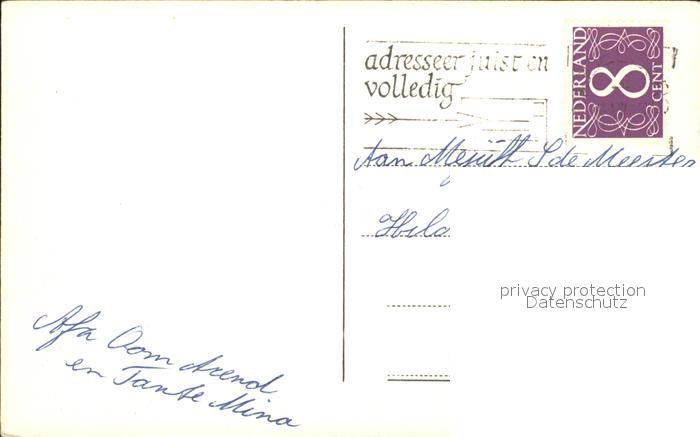 adresseer juist en
volledig
NEDERLAND
8
CENT
Aan S de Meester
privacy protection
Datenschutz
Afz Oom Arend
en Tante Mina